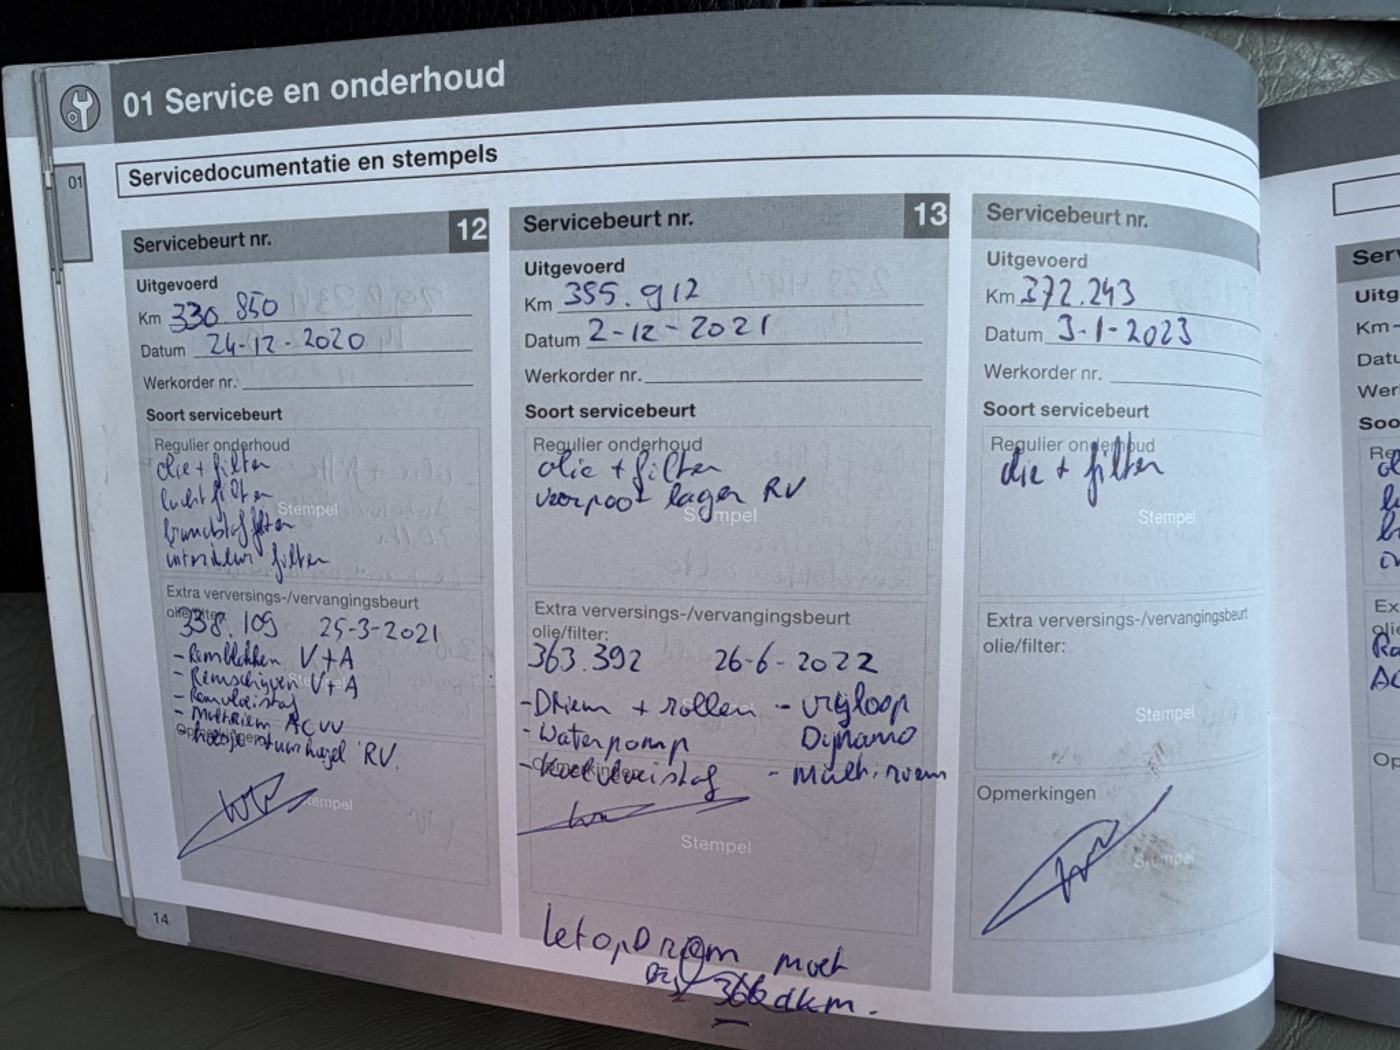 01 Service en onderhoud
01
Servicedocumentatie en stempels
Servicebeurt nr. 12
Uitgevoerd
Km 330 850
Datum 24-12-2020
Werkorder nr.
Soort servicebeurt
Regulier onderhoud
olie + filter
luchtfilter
Stempel
brandstoffilter
interieur filter
Extra verversings-/vervangingsbeurt
olie/filter:
338.109 25-3-2021
- Remblokken V+A
- Remschijven V+A
- Remvloeistof
- Multiriem ACVV
stuurkogel RV.
Stempel
14
Servicebeurt nr. 13
Uitgevoerd
Km 355.912
Datum 2-12-2021
Werkorder nr.
Soort servicebeurt
Regulier onderhoud
olie + filter
voorpoot lager RV
Stempel
Extra verversings-/vervangingsbeurt
olie/filter:
363.392 26-6-2022
- DRiem + rollen - vrijloop
- Waterpomp Dynamo
Opmerkingen
- Koelvloeistof - Multi.riem
Stempel
Let op DRiem moet
366dkm.
Servicebeurt nr.
Uitgevoerd
Km 372.243
Datum 3-1-2023
Werkorder nr.
Soort servicebeurt
Regulier onderhoud
olie + filter
Stempel
Extra verversings-/vervangingsbeurt
olie/filter:
Stempel
Opmerkingen
Stempel
Ser
Uitg
Km
Datu
Wer
Soo
Re
Ex
olie
Op